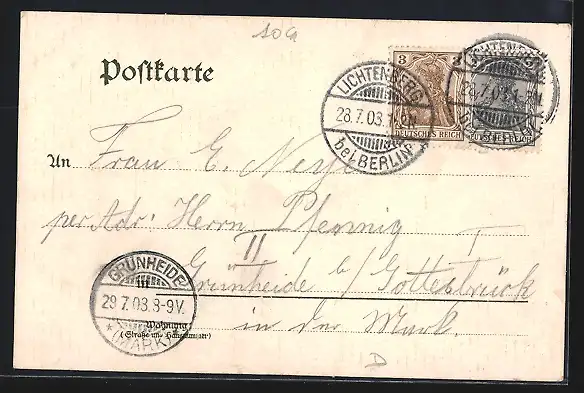 10a
Postkarte
LICHTENBERG
28.7.03.
bei BERLIN
3 3
DEUTSCHES REICH
28.7.03.1-2N.
DEUTSCHES REICH
An Frau E.
per Adr: Herrn Pfennig
II
Grünheide b/ Gottesbrück
in der Mark.
GRÜNHEIDE
29.7.03.8-9V.
* (MARK)
Wohnung
(Straße und Hausnummer)
D